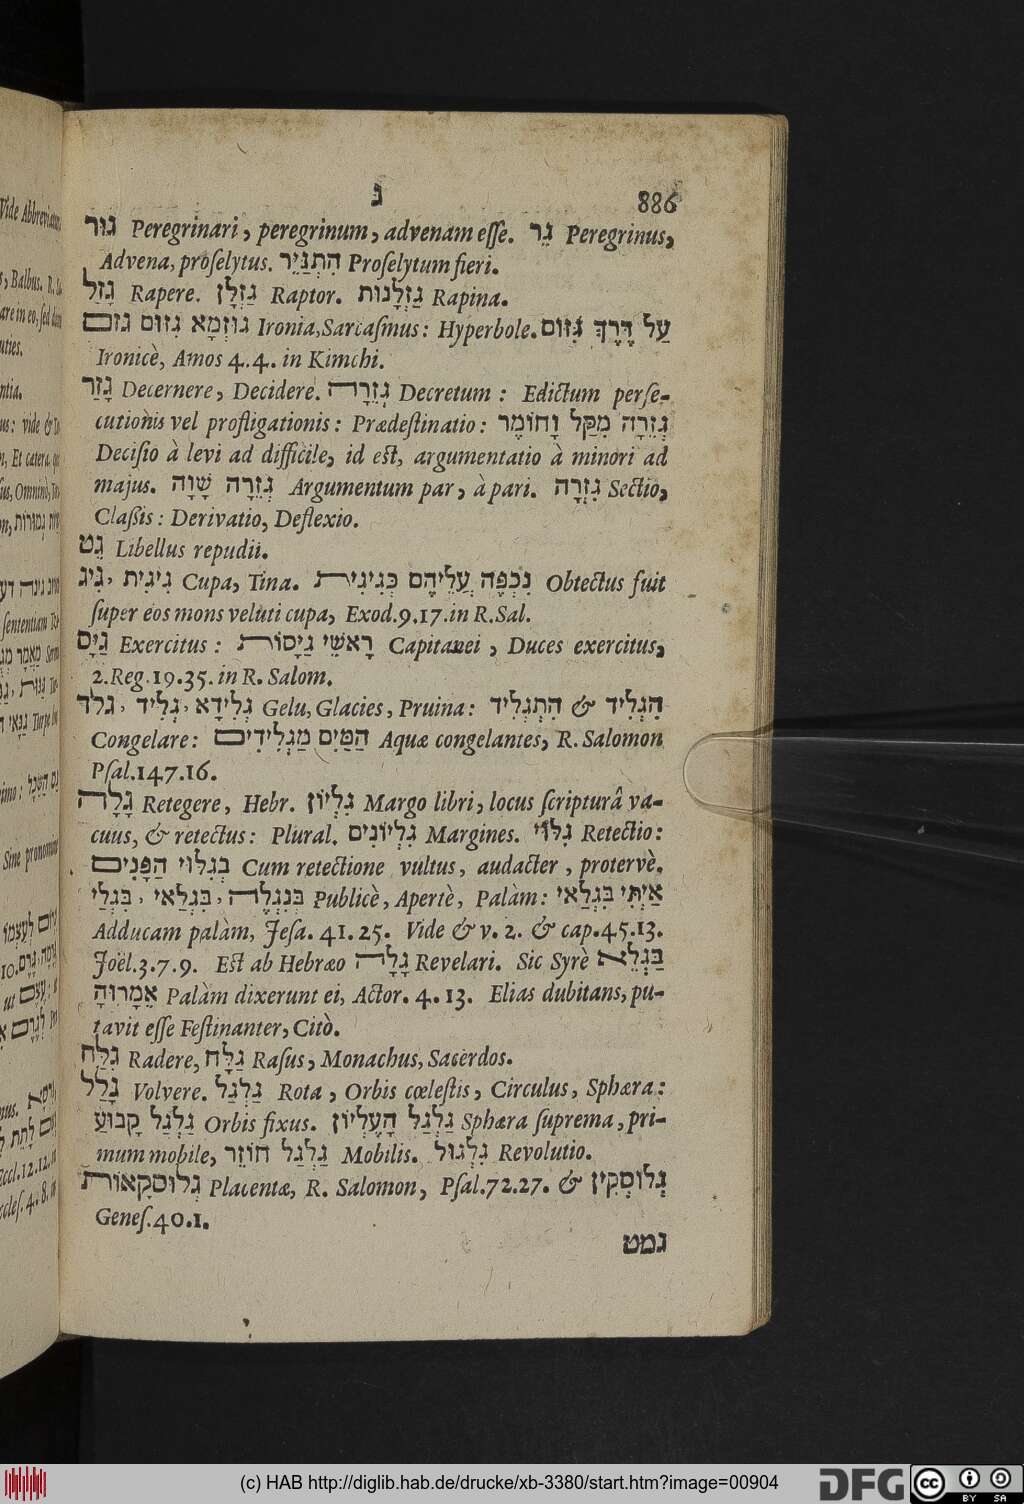 ג 886
גור Peregrinari, peregrinum, advenam eſſe. גֵּר Peregrinus,
Advena, proſelytus. הִתְגַּיֵּיר Proſelytum fieri.
גָּזַל Rapere. גַּזְלָן Raptor. גַּזְלָנוּת Rapina.
גזם גזום גוּזְמָא Ironia, Sarcaſmus: Hyperbole. עַל דֶּרֶךְ גִּזּוּם
Ironicè, Amos 4.4. in Kimchi.
גָּזַר Decernere, Decidere. גְּזֵרָה Decretum: Edictum perſe-
cutionis vel profligationis: Prædeſtinatio: גְּזֵרָה מִקַּל וָחוֹמֶר
Deciſio à levi ad difficile, id eſt, argumentatio à minori ad
majus. גְּזֵרָה שָׁוָה Argumentum par, à pari. גִּזְרָה Sectio,
Claßis: Derivatio, Deflexio.
גֵּט Libellus repudii.
גִּיג, גִּיגִית Cupa, Tina. נִכְפֶּה עֲלֵיהֶם כְּגִיגִית Obtectus fuit
ſuper eos mons veluti cupa, Exod.9.17. in R. Sal.
גַּיָּס Exercitus: רָאשֵׁי גַיָּסוֹת Capitanei, Duces exercitus,
2. Reg. 19.35. in R. Salom.
גלד, גְּלִיד, גְּלִידָא Gelu, Glacies, Pruina: הִגְלִיד & הִתְגְלִיד
Congelare: הַמַּיִם מַגְלִידִים Aquæ congelantes, R. Salomon
Pſal.147.16.
גָּלָה Retegere, Hebr. גִּלְיוֹן Margo libri, locus ſcripturâ va-
cuus, & retectus: Plural. גִּלְיוֹנִים Margines. גִּלּוּי Retectio:
בְגִלּוּי הַפָּנִים Cum retectione vultus, audacter, protervè.
בְּנִגְלֶה, בְּגַלַאי, בְּגַלַי Publicè, Apertè, Palàm: אַיְתִּי בִּגְלַאי
Adducam palàm, Jeſa. 41.25. Vide & v. 2. & cap.45.13.
Joël.3.7.9. Eſt ab Hebræo גָּלָה Revelari. Sic Syrè בַּגְלֵא
אֲמַרוּהָ Palàm dixerunt ei, Actor. 4.13. Elias dubitans, pu-
tavit eſſe Feſtinanter, Citò.
גִּלַּח Radere, גַּלָּח Raſus, Monachus, Sacerdos.
גָּלַל Volvere. גַּלְגַּל Rota, Orbis cœleſtis, Circulus, Sphæra:
גַּלְגַּל קָבוּעַ Orbis fixus. גַּלְגַּל הָעֶלְיוֹן Sphæra ſuprema, pri-
mum mobile, גַּלְגַּל חוֹזֵר Mobilis. גִּלְגּוּל Revolutio.
גְּלוּסְקָאוֹת Placentæ, R. Salomon, Pſal.72.27. & גְּלוּסְקִין
Geneſ.40.1.
גמט
(c) HAB http://diglib.hab.de/drucke/xb-3380/start.htm?image=00904
DFG
cc BY SA